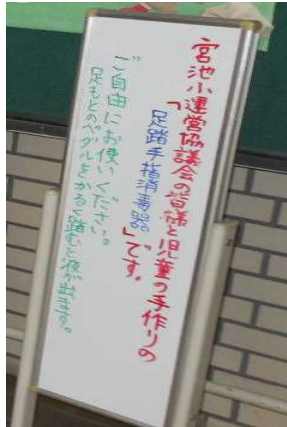 宮池小運営協議会の皆様と児童の手作りの
「足踏手指消毒器」です。
ご自由にお使いください。
足もとのペダルをかるく踏むと液が出ます。